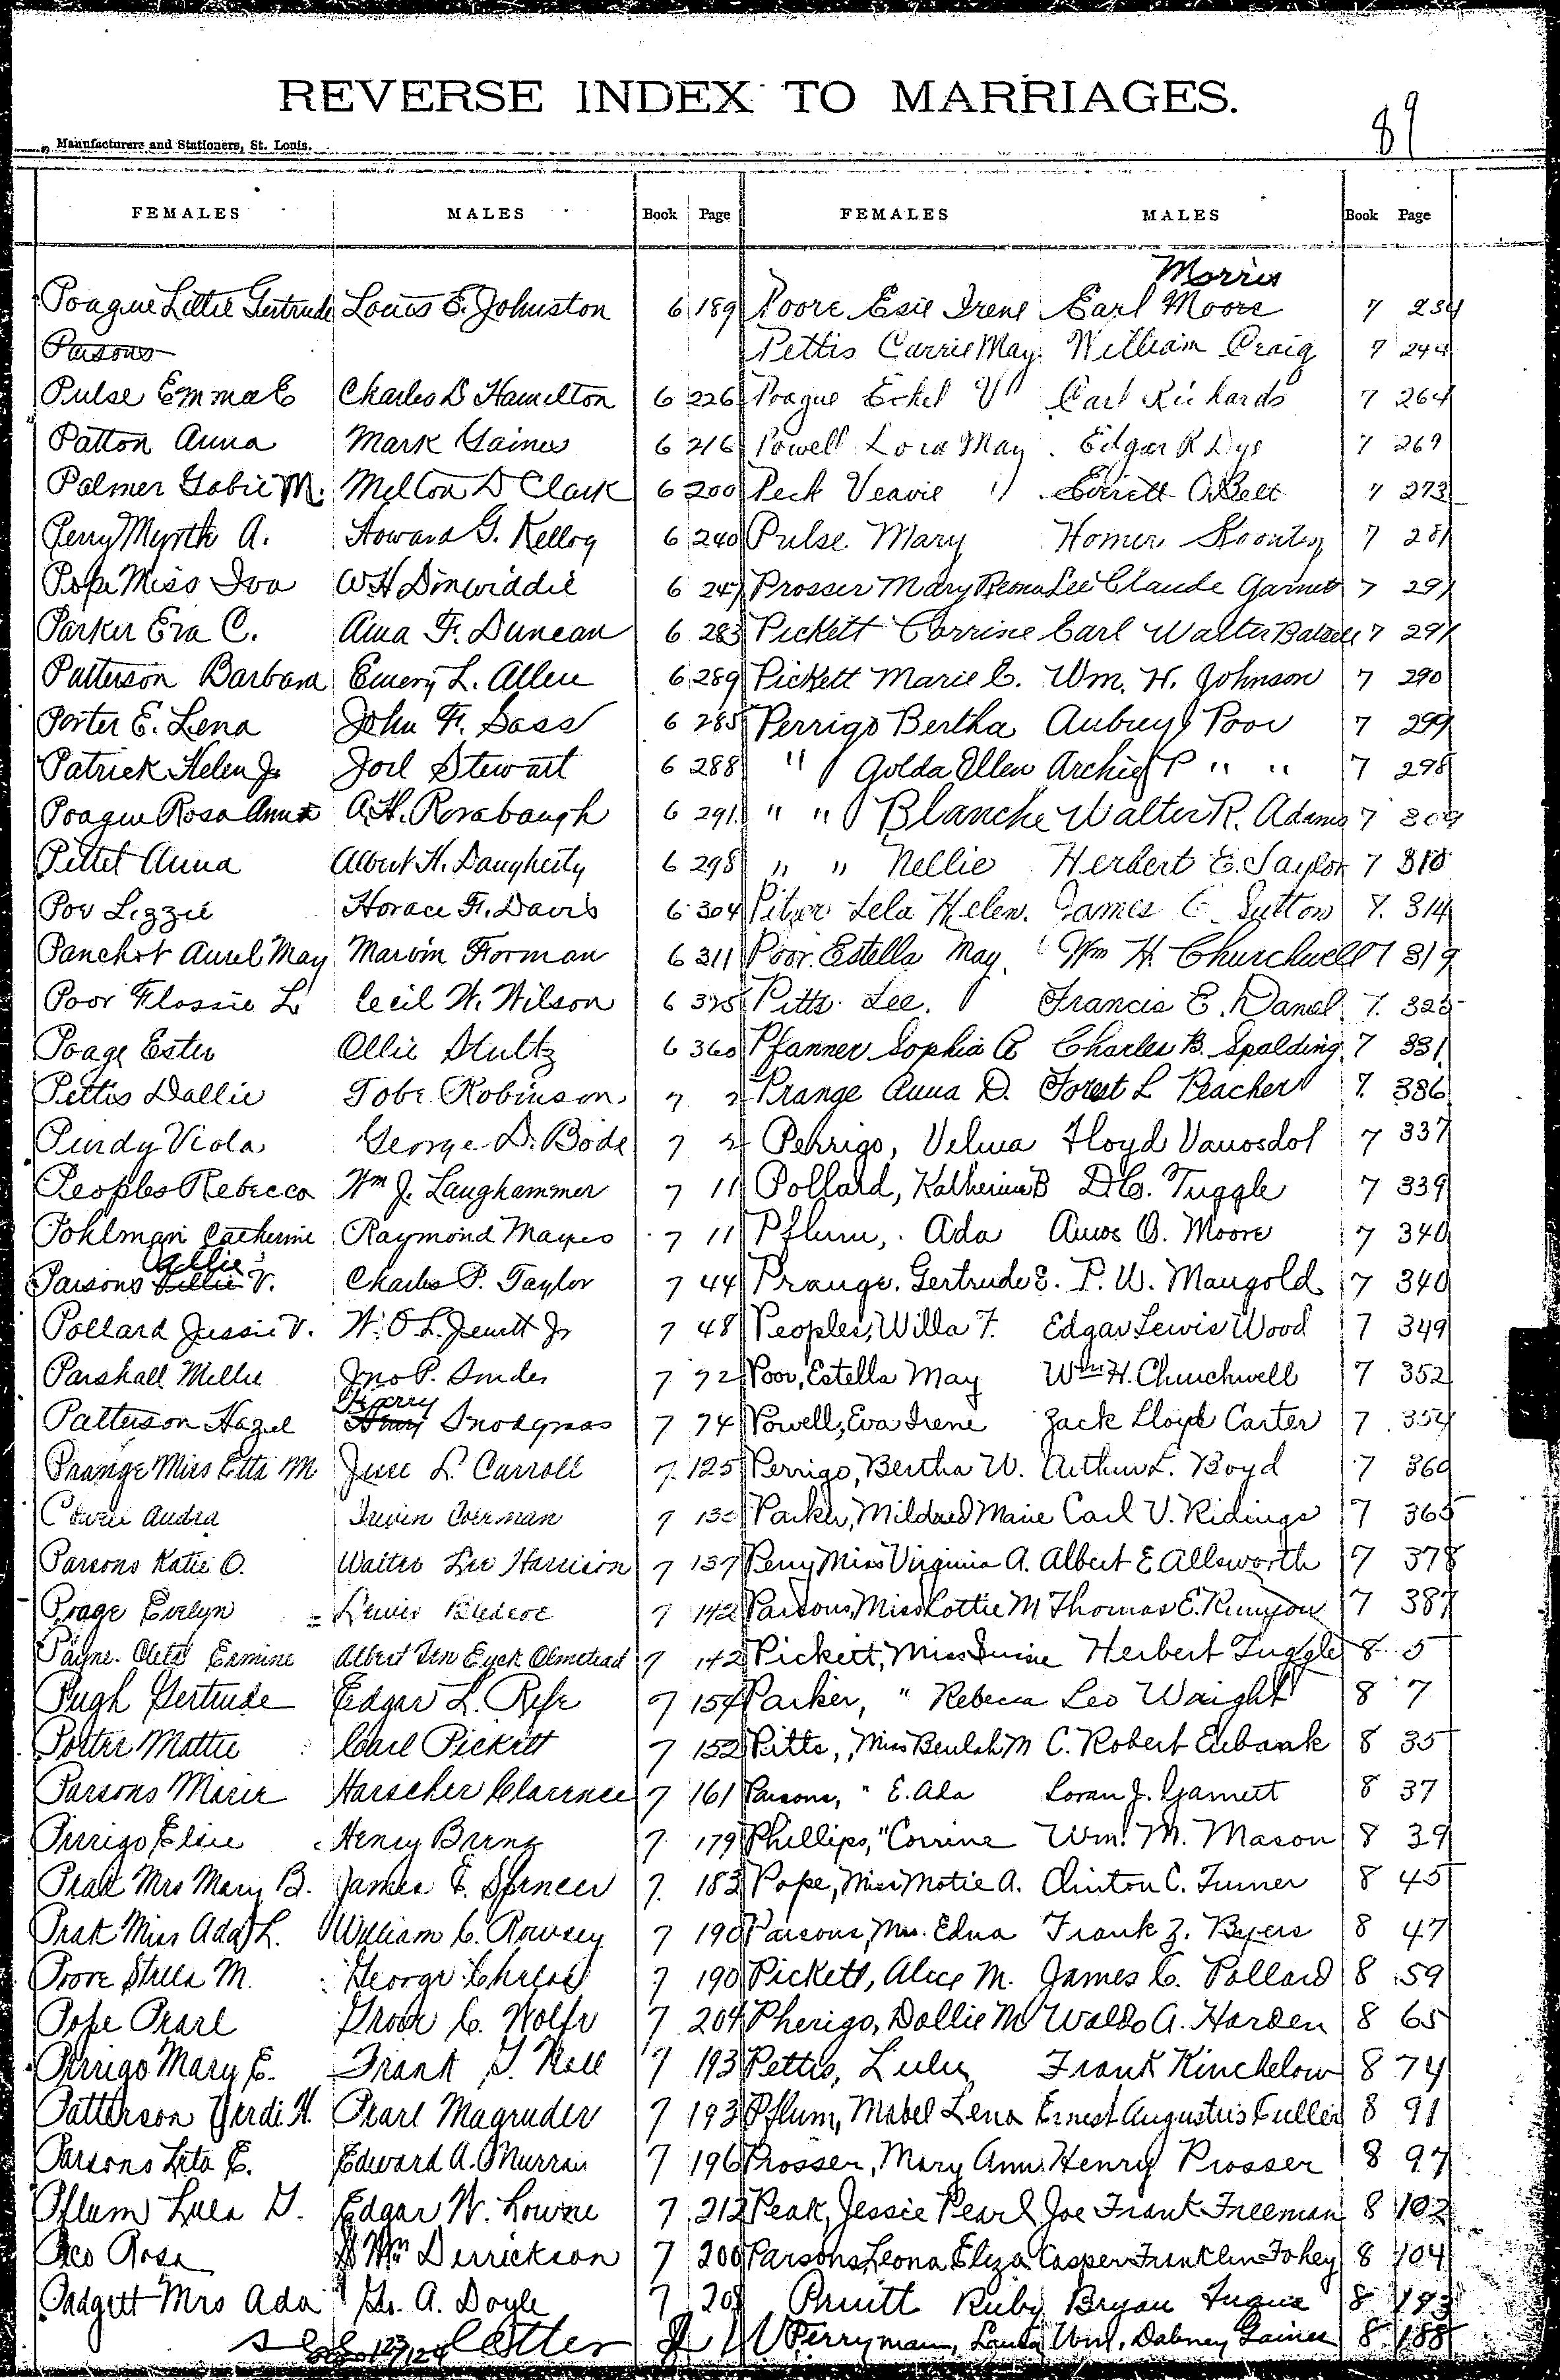 REVERSE INDEX TO MARRIAGES.
89
Manufacturers and Stationers, St. Louis.
FEMALES MALES Book Page FEMALES MALES Book Page
Morris
Poague Lillie Gertrude Louis E. Johnston 6 189 Poore Esie Irene Earl Moore 7 234
Parsons Pettis Carrie May William Craig 7 244
Pulse Emma E Charles D Hamilton 6 226 Poague Ethel V Carl Richards 7 264
Patton Anna Mark Gaines 6 216 Powell Lora May Edgar R Dye 7 269
Palmer Gobie M. Melton D Clark 6 200 Peck Veavie Everett O Belt 7 273
Perry Myrth A. Howard G. Kellog 6 240 Pulse Mary Homer Koontz 7 281
Pope Miss Iva W H Dinwiddie 6 247 Prosser Mary Lee Claude Garnet 7 291
Parker Era C. Asa F. Duncan 6 283 Pickett Corrine Earl Walter 7 291
Patterson Barbara Emery L. Allen 6 289 Pickett Marie C. Wm. H. Johnson 7 290
Porter E. Lena John F. Sass 6 285 Perrigo Bertha Aubrey Poor 7 299
Patrick Helen J. Joel Stewart 6 288 " Golda Ellen Archie P " " 7 298
Poague Rosa Anna A. H. Rorabaugh 6 291 " " Blanche Walter R. Adams 7 309
Pettet Anna Albert H. Daugherty 6 298 " " Nellie Herbert E. Saylor 7 310
Poe Lizzie Horace F. Davis 6 304 Pitzer Lela Helen. James E. Sutton 7. 314
Panchot Aurel May Marvin Forman 6 311 Poor Estella May Wm H. Churchwell 7 319
Poor Flossie L Cecil W. Wilson 6 325 Pitts Lee. Francis E. Daniel 7. 325
Poage Ester Ollie Stultz 6 360 Pfanner Sophia A Charles B. Spalding 7 331
Pettis Dallie Tobe Robinson 7 2 Prange Anna D. Forest L Peacher 7. 336
Purdy Viola George D. Bode 7 2 Perrigo, Velma Floyd Vanosdol 7 337
Peoples Rebecca Wm J. Laughammer 7 11 Pollard, Katherine B D. C. Tuggle 7 339
Pohlman Catherine Raymond Mayes 7 11 Pflum, Ada Amos O. Moore 7 340
Callie
Parsons V. Charles P. Taylor 7 44 Prange, Gertrude E. P. W. Mangold 7 340
Pollard Jessie V. W. O. L. Jewett Jr 7 48 Peoples, Willa F. Edgar Lewis Wood 7 349
Parshall Millie Jno P. Snider 7 72 Poor, Estella May Wm H. Churchwell 7 352
Harry
Patterson Hazel Henry Snodgrass 7 74 Powell, Eva Irene Zack Lloyd Carter 7 354
Prange Miss Etta M Jesse L. Carroll 7 125 Perrigo, Bertha W. Arthur L. Boyd 7 360
Audra Irwin Coerman 7 Parker, Mildred Marie Carl V. Ridings 7 365
Parsons Katie O. Walter Lee Harrison 7 137 Perry Miss Virginia A. Albert E Allsworth 7 378
Poage Evelyn Lewis Bledsoe 7 142 Parsons, Miss Lottie M Thomas E. Runyon 7 387
Payne Oleta Ermine Albert Ten Eyck Olmstead 7 142 Pickett, Miss Herbert Tuggle 8 5
Pugh Gertrude Edgar L. 7 154 Parker, " Rebecca Leo Waight 8 7
Potter Mattie Carl Pickett 7 152 Pitts, Miss Beulah M C. Robert Eubank 8 35
Parsons Marie Harscher Clarence 7 161 Parsons, " E. Ada Loran J. Garnett 8 37
Perrigo Elsie Henry 7 179 Phillips, " Corrine Wm. M. Mason 8 39
Peak Mrs Mary B. James E. Spencer 7 183 Pope, Miss Motie A. Clinton C. Turner 8 45
Peak Miss Ada L. William C. Rowsey 7 190 Parsons, Mrs. Edna Frank Z. Byers 8 47
Poore Stella M. George 7 190 Pickett, Alice M. James C. Pollard 8 59
Pope Pearl Grover C. Wolfe 7 204 Pherigo, Dollie M Waldo A. Harden 8 65
Perrigo Mary E. Frank 7 193 Pettis, Lulu Frank Kinchelow 8 74
Patterson Verdi H. Pearl Magruder 7 193 Pflum, Mabel Lena Ernest Augustus Fuller 8 91
Parsons Leta E. Edward A. Murray 7 196 Prosser, Mary Ann Henry Prosser 8 97
Pflum Lula D. Edgar W. Lowrie 7 212 Peak, Jessie Pearl Joe Frank Freeman 8 102
Rosa Derrickson 7 200 Parsons, Leona Eliza Casper Franklin Fohey 8 104
Padgett Mrs Ada Geo. A. Doyle 7 208 Pruitt Ruby Bryan 8 183
see letter Perryman, Wm. Dabney Gaines 8 188